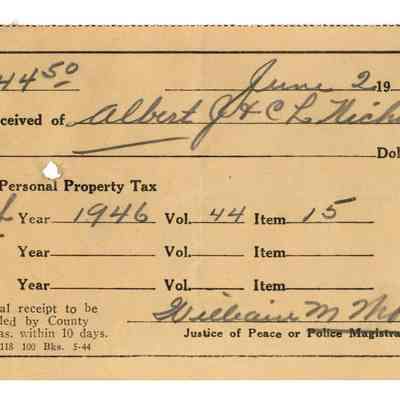 44 50 June 2 19
ceived of Albert J & C L Nich
Dol
Personal Property Tax
Year 1946 Vol. 44 Item 15
Year Vol. Item
Year Vol. Item
al receipt to be
led by County
as. within 10 days.
William M
Justice of Peace or Police Magistra
118 100 Bks. 5-44